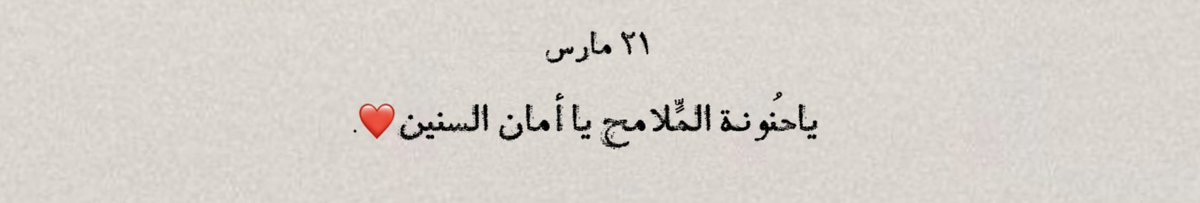 ٢١ مارس
ياحنُونة المٍّلامح يا أمان السنين❤️.